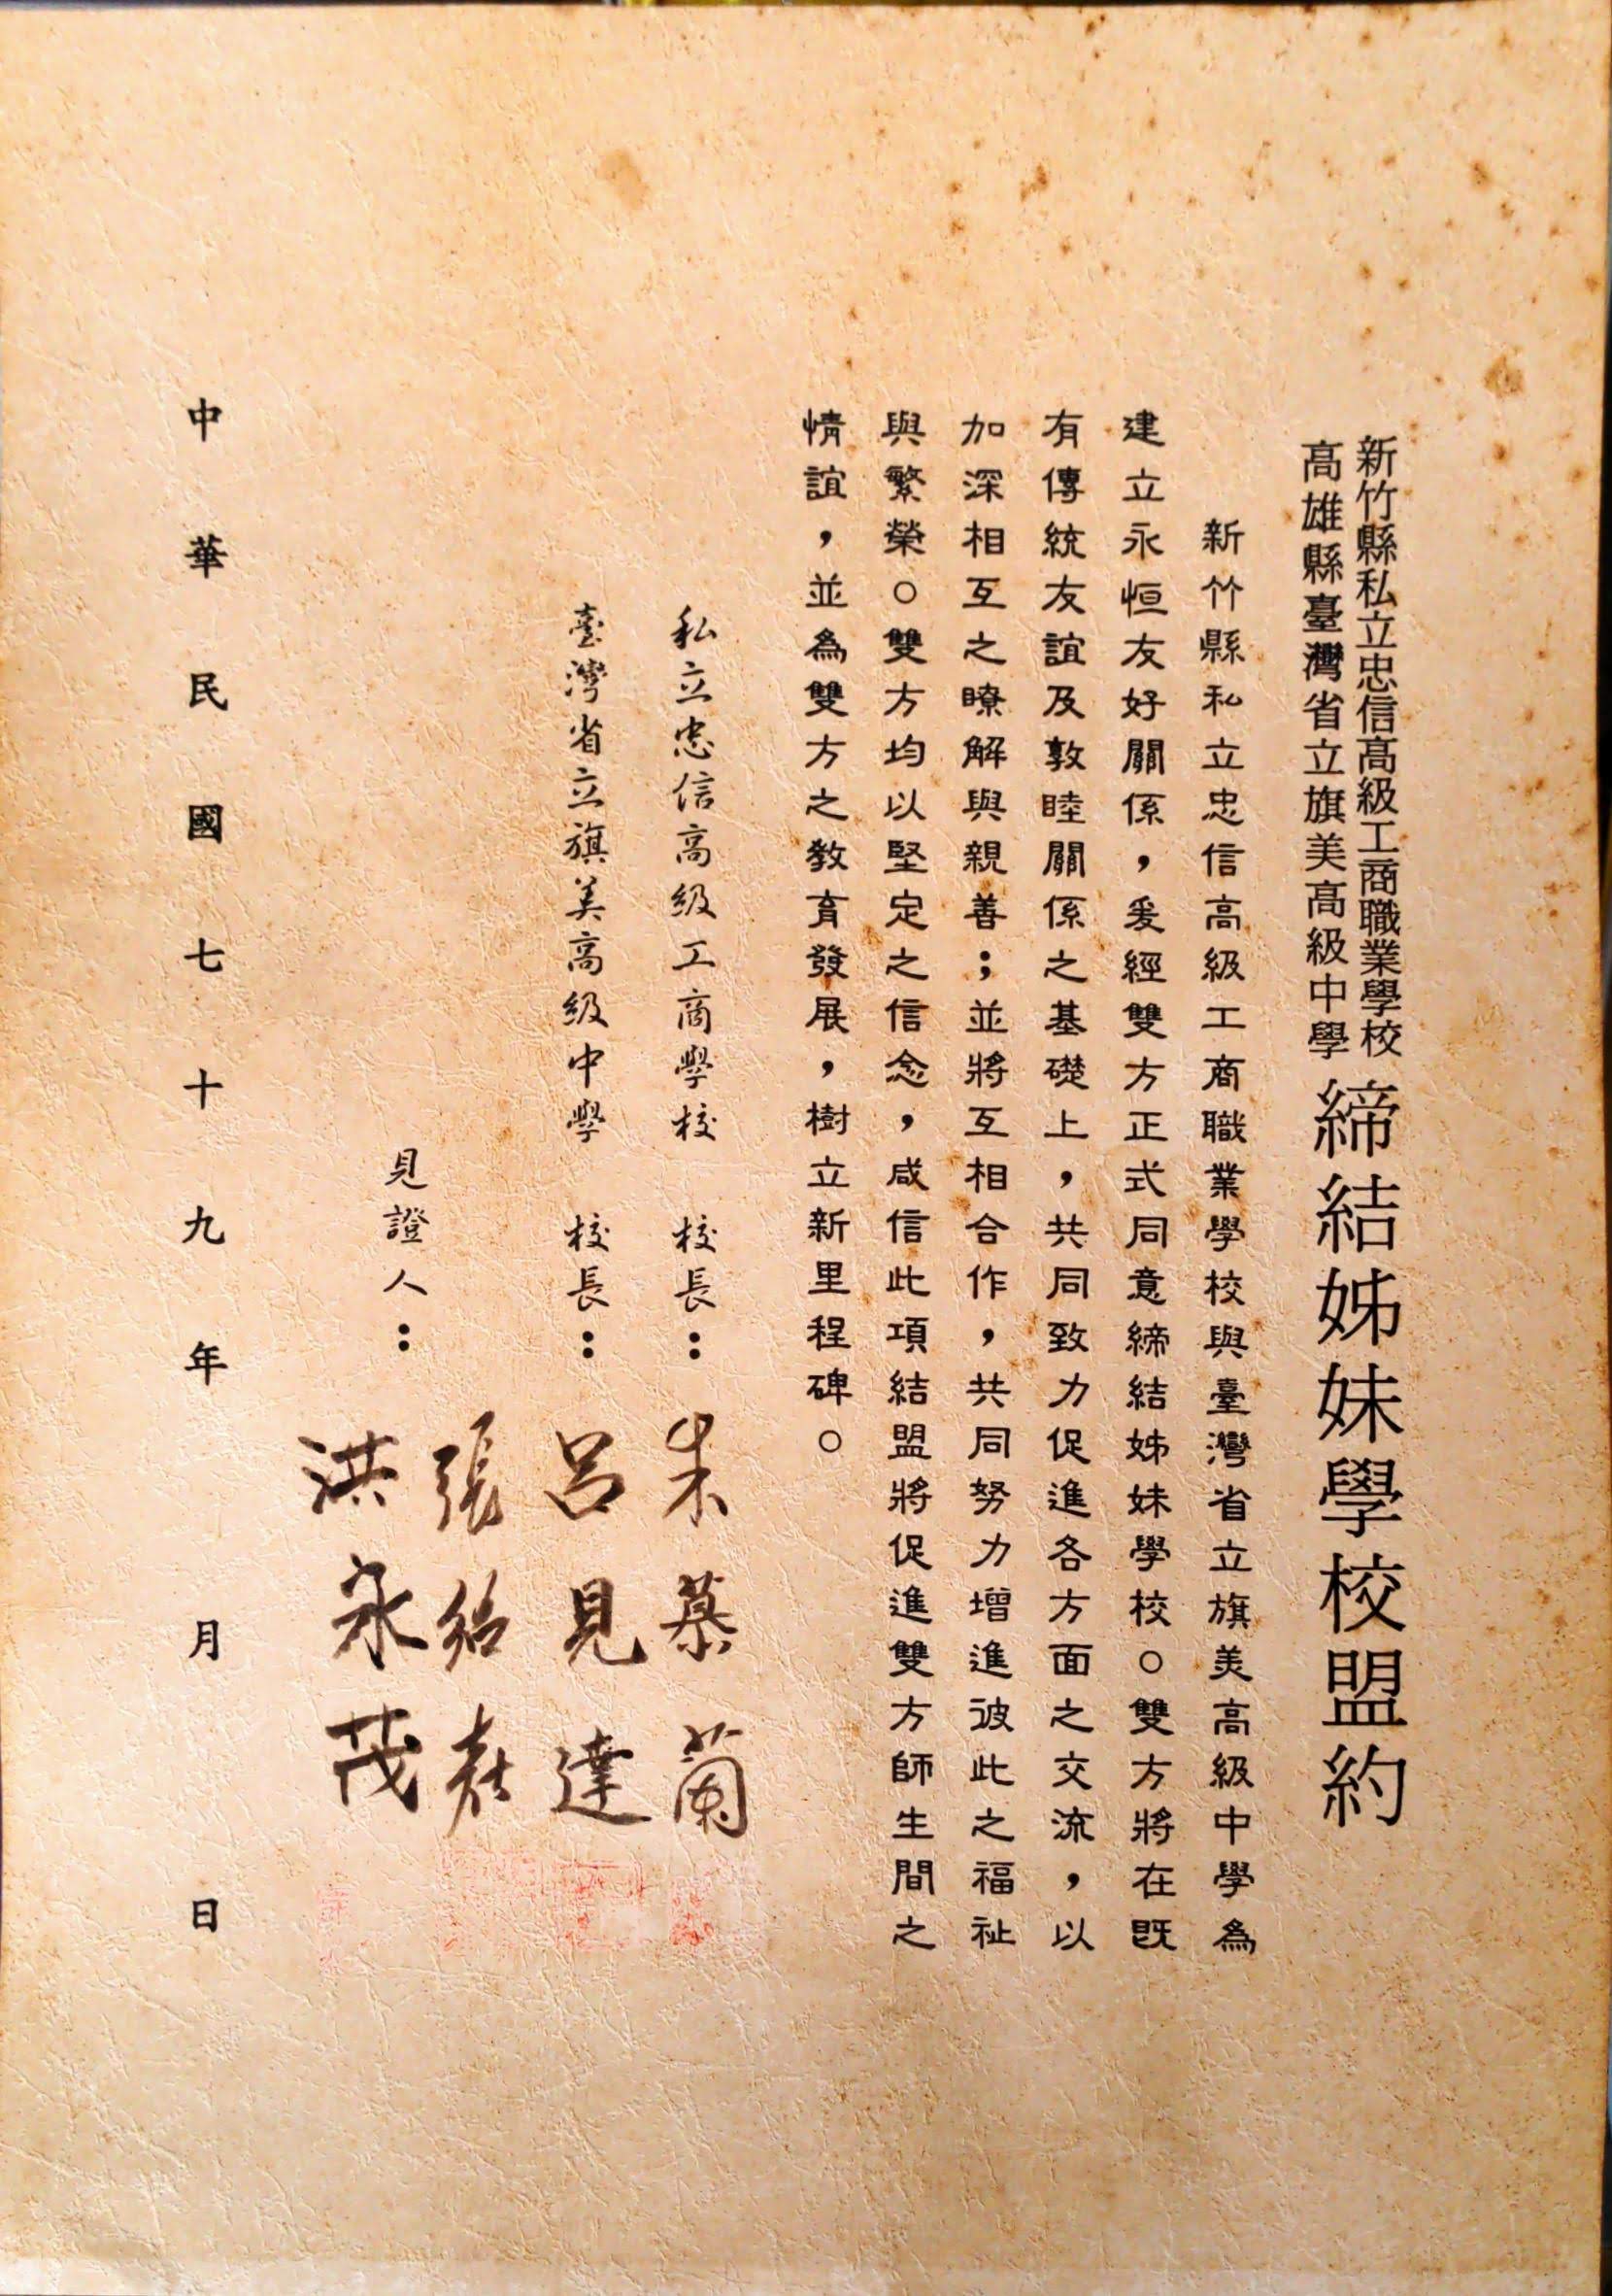 新竹縣私立忠信高級工商職業學校
高雄縣臺灣省立旗美高級中學
締結姊妹學校盟約
新竹縣私立忠信高級工商職業學校與臺灣省立旗美高級中學為
建立永恒友好關係，爰經雙方正式同意締結姊妹學校。雙方將在既
有傳統友誼及敦睦關係之基礎上，共同致力促進各方面之交流，以
加深相互之瞭解與親善；並將互相合作，共同努力增進彼此之福祉
與繁榮。雙方均以堅定之信念，咸信此項結盟將促進雙方師生間之
情誼，並為雙方之教育發展，樹立新里程碑。
私立忠信高級工商學校 校長：朱慕蘭
臺灣省立旗美高級中學 校長：呂見達
見證人：
張
洪永茂
中華民國七十九年 月 日